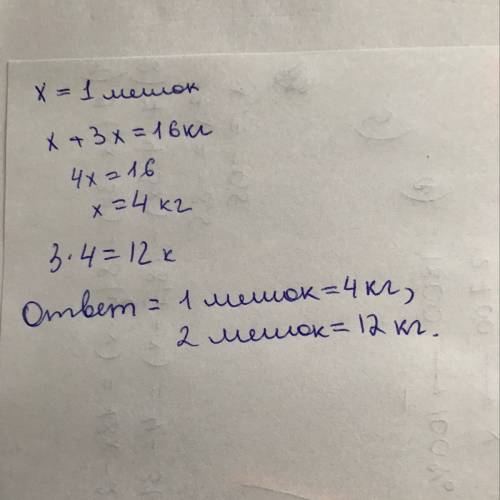 x = 1 мешок
x + 3x = 16 кг
4x = 16
x = 4 кг
3 · 4 = 12 к
Ответ = 1 мешок = 4 кг,
2 мешок = 12 кг.